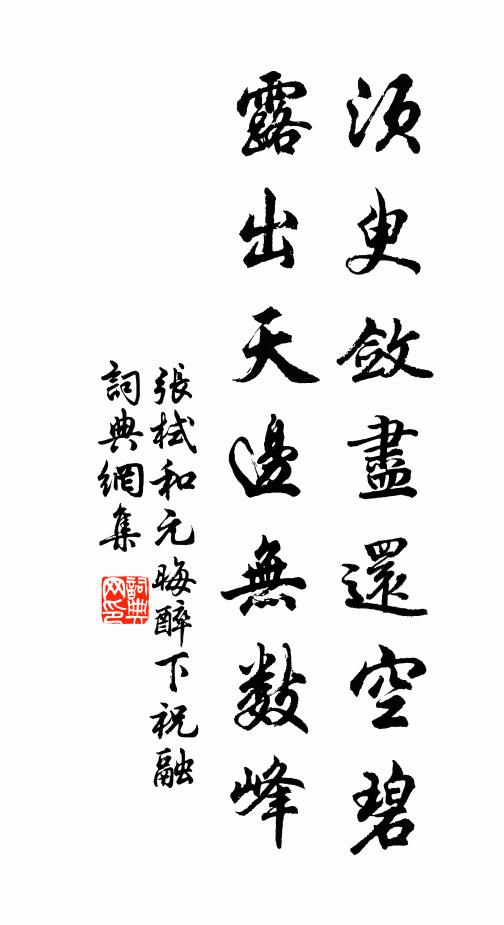 須臾斂盡還空碧
露出天邊無數峰
張栻和元晦醉下祝融
詞典網集
詞典網印